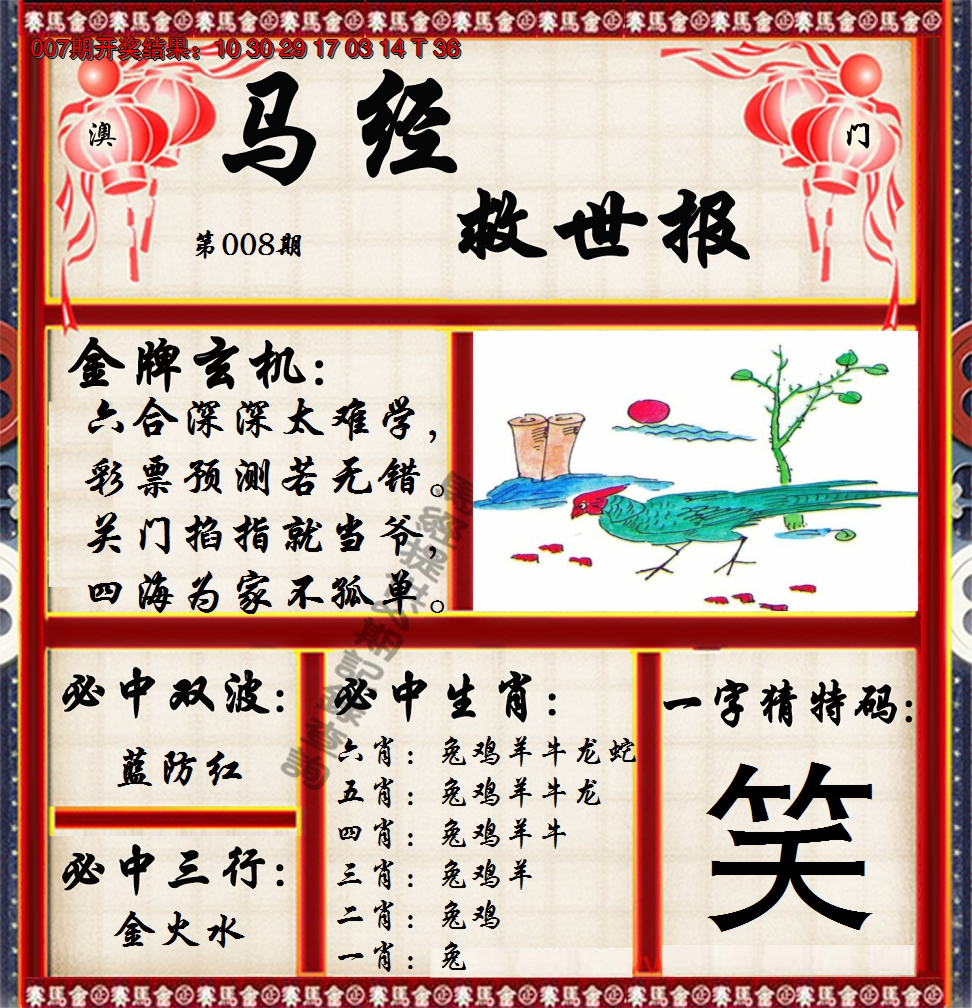 007期开奖结果：10 30 29 17 03 14 T 36
澳
门
马经
救世报
第008期
金牌玄机：
六合深深太难学，
彩票预测若无错。
关门掐指就当爷，
四海为家不孤单。
必中双波：
蓝防红
必中三行：
金火水
必中生肖：
六肖：兔鸡羊牛龙蛇
五肖：兔鸡羊牛龙
四肖：兔鸡羊牛
三肖：兔鸡羊
二肖：兔鸡
一肖：兔
一字猜特码：
笑